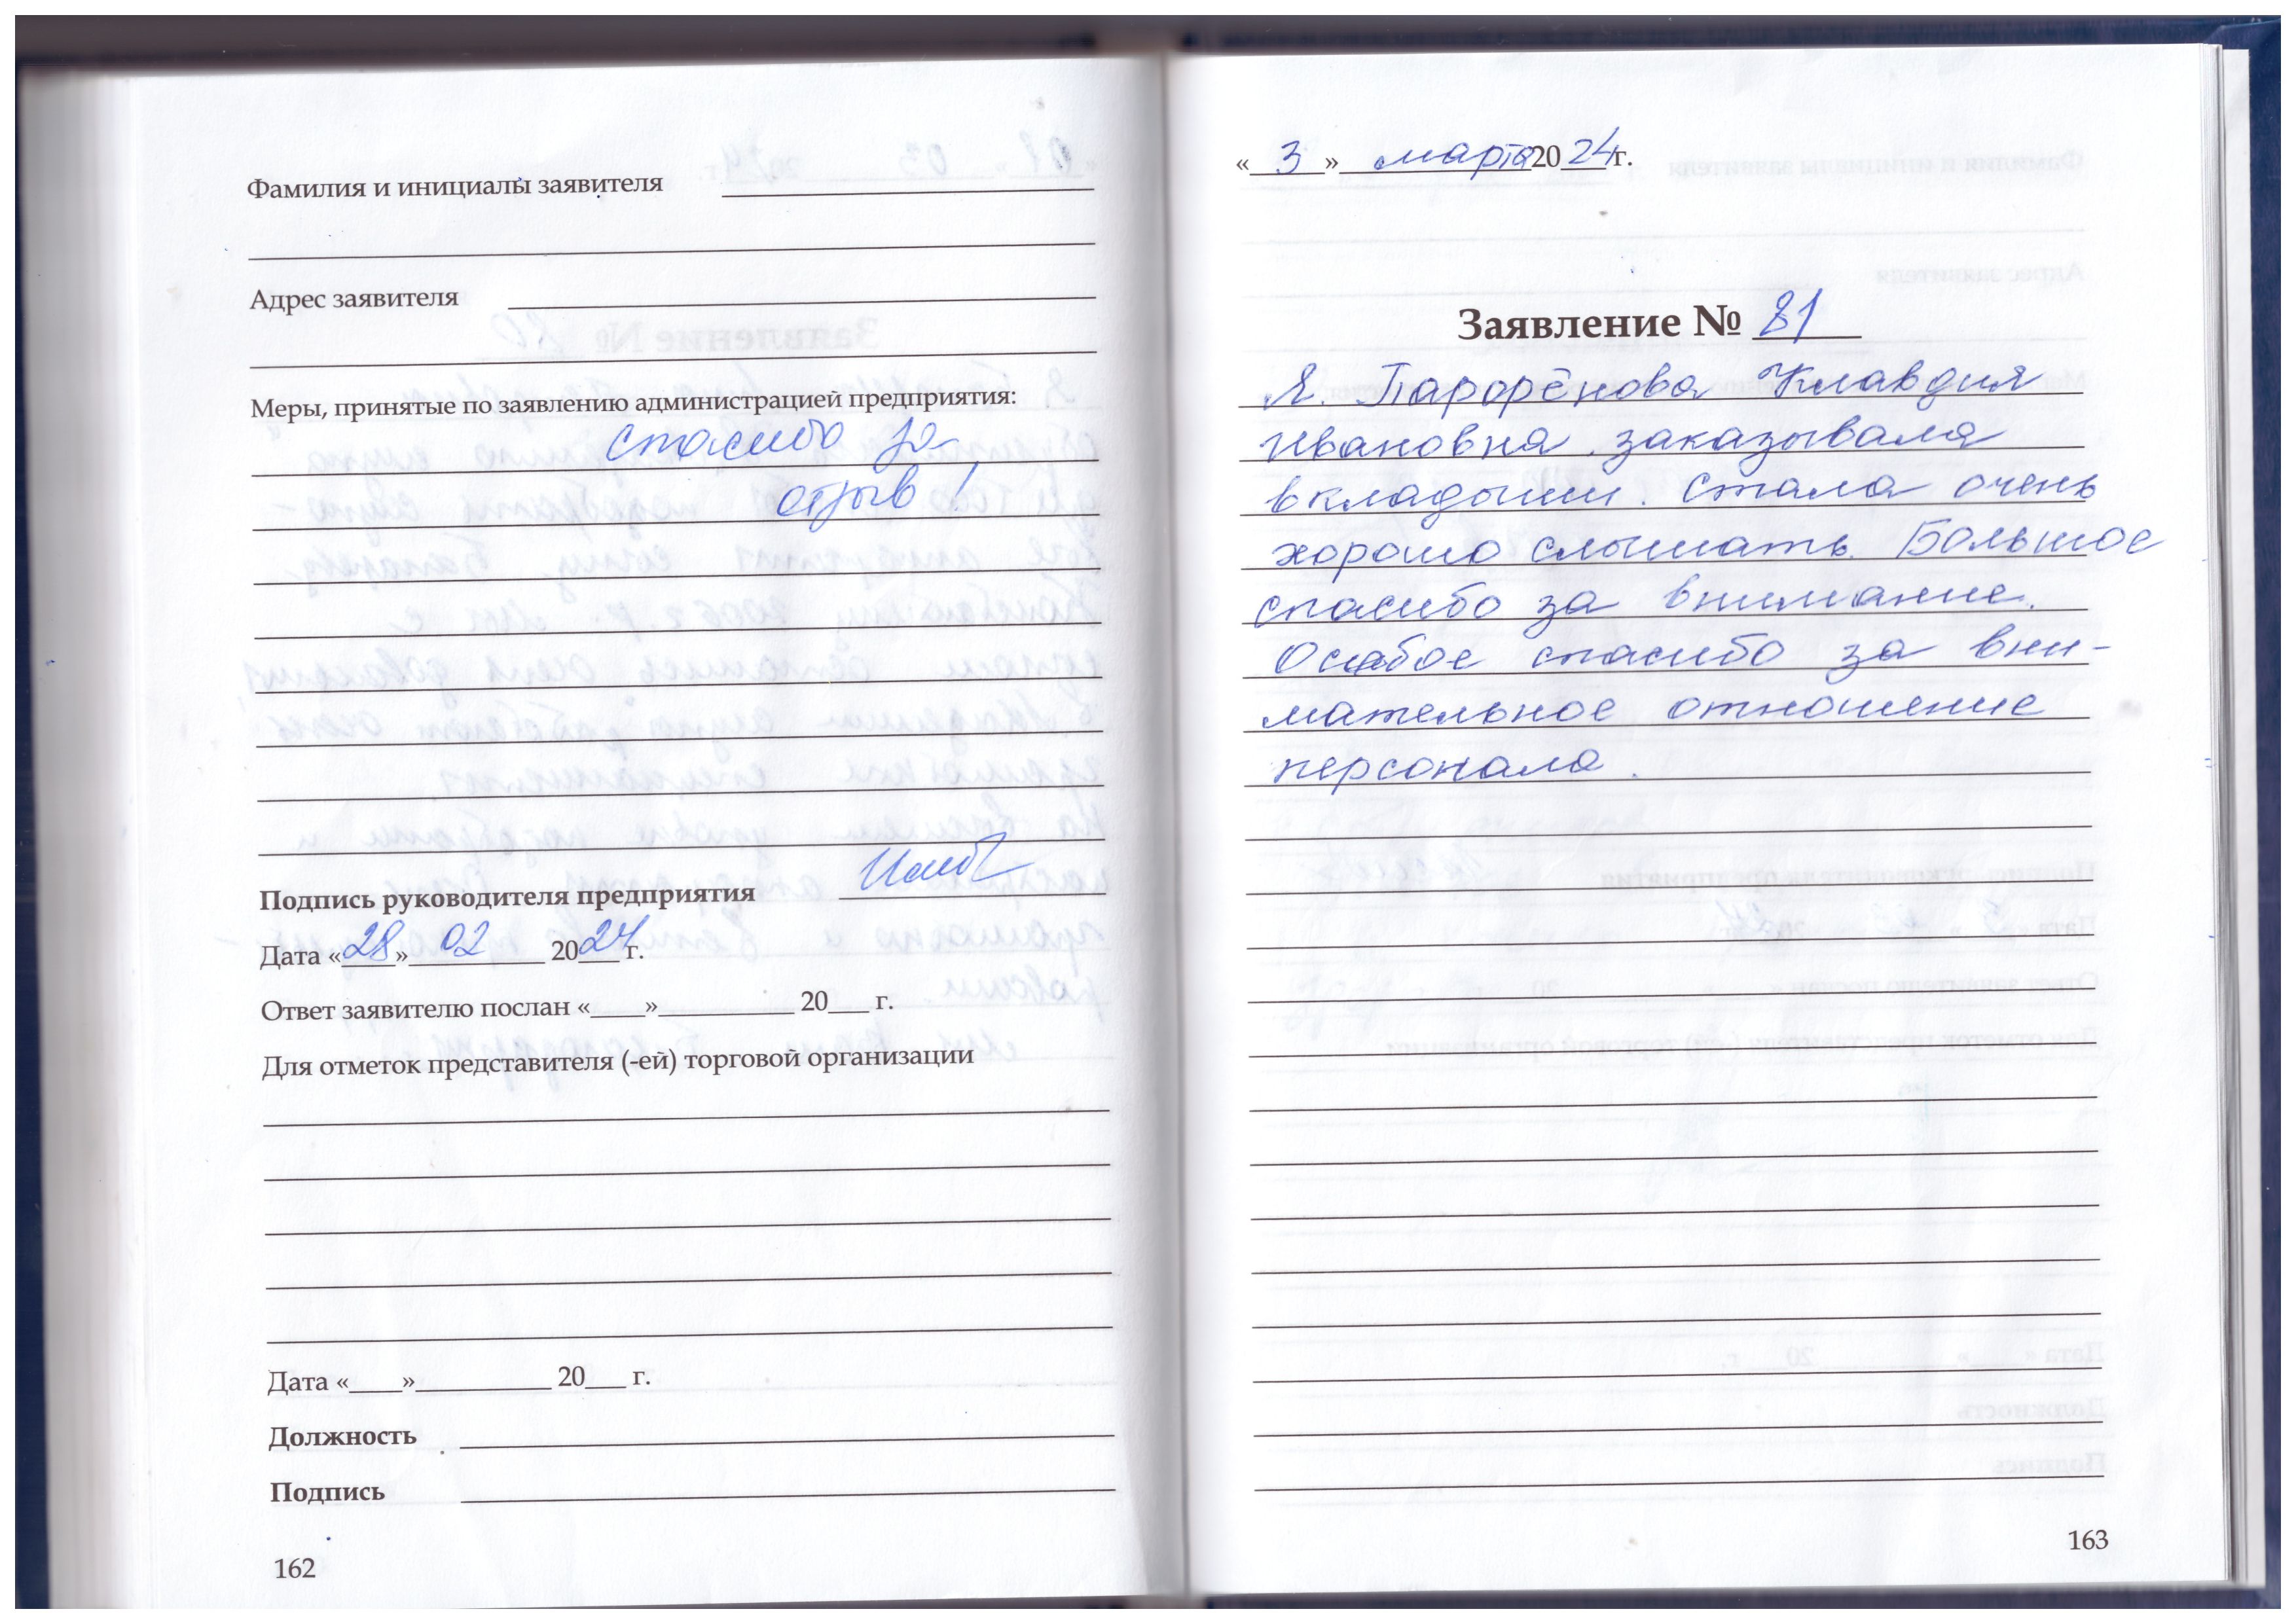 Фамилия и инициалы заявителя
Адрес заявителя
Меры, принятые по заявлению администрацией предприятия:
спасибо за
отзыв!
Подпись руководителя предприятия
Дата «28» 02 2024 г.
Ответ заявителю послан «____»__________ 20___ г.
Для отметок представителя (-ей) торговой организации
Дата «____»__________ 20___ г.
Должность
Подпись
162
«3» марта 2024 г.
Заявление № 81
Я. Парфёнова Клавдия
Ивановна, заказывала
вкладыши. Стала очень
хорошо слышать. Большое
спасибо за внимание.
Особое спасибо за вни-
мательное отношение
персонала.
163